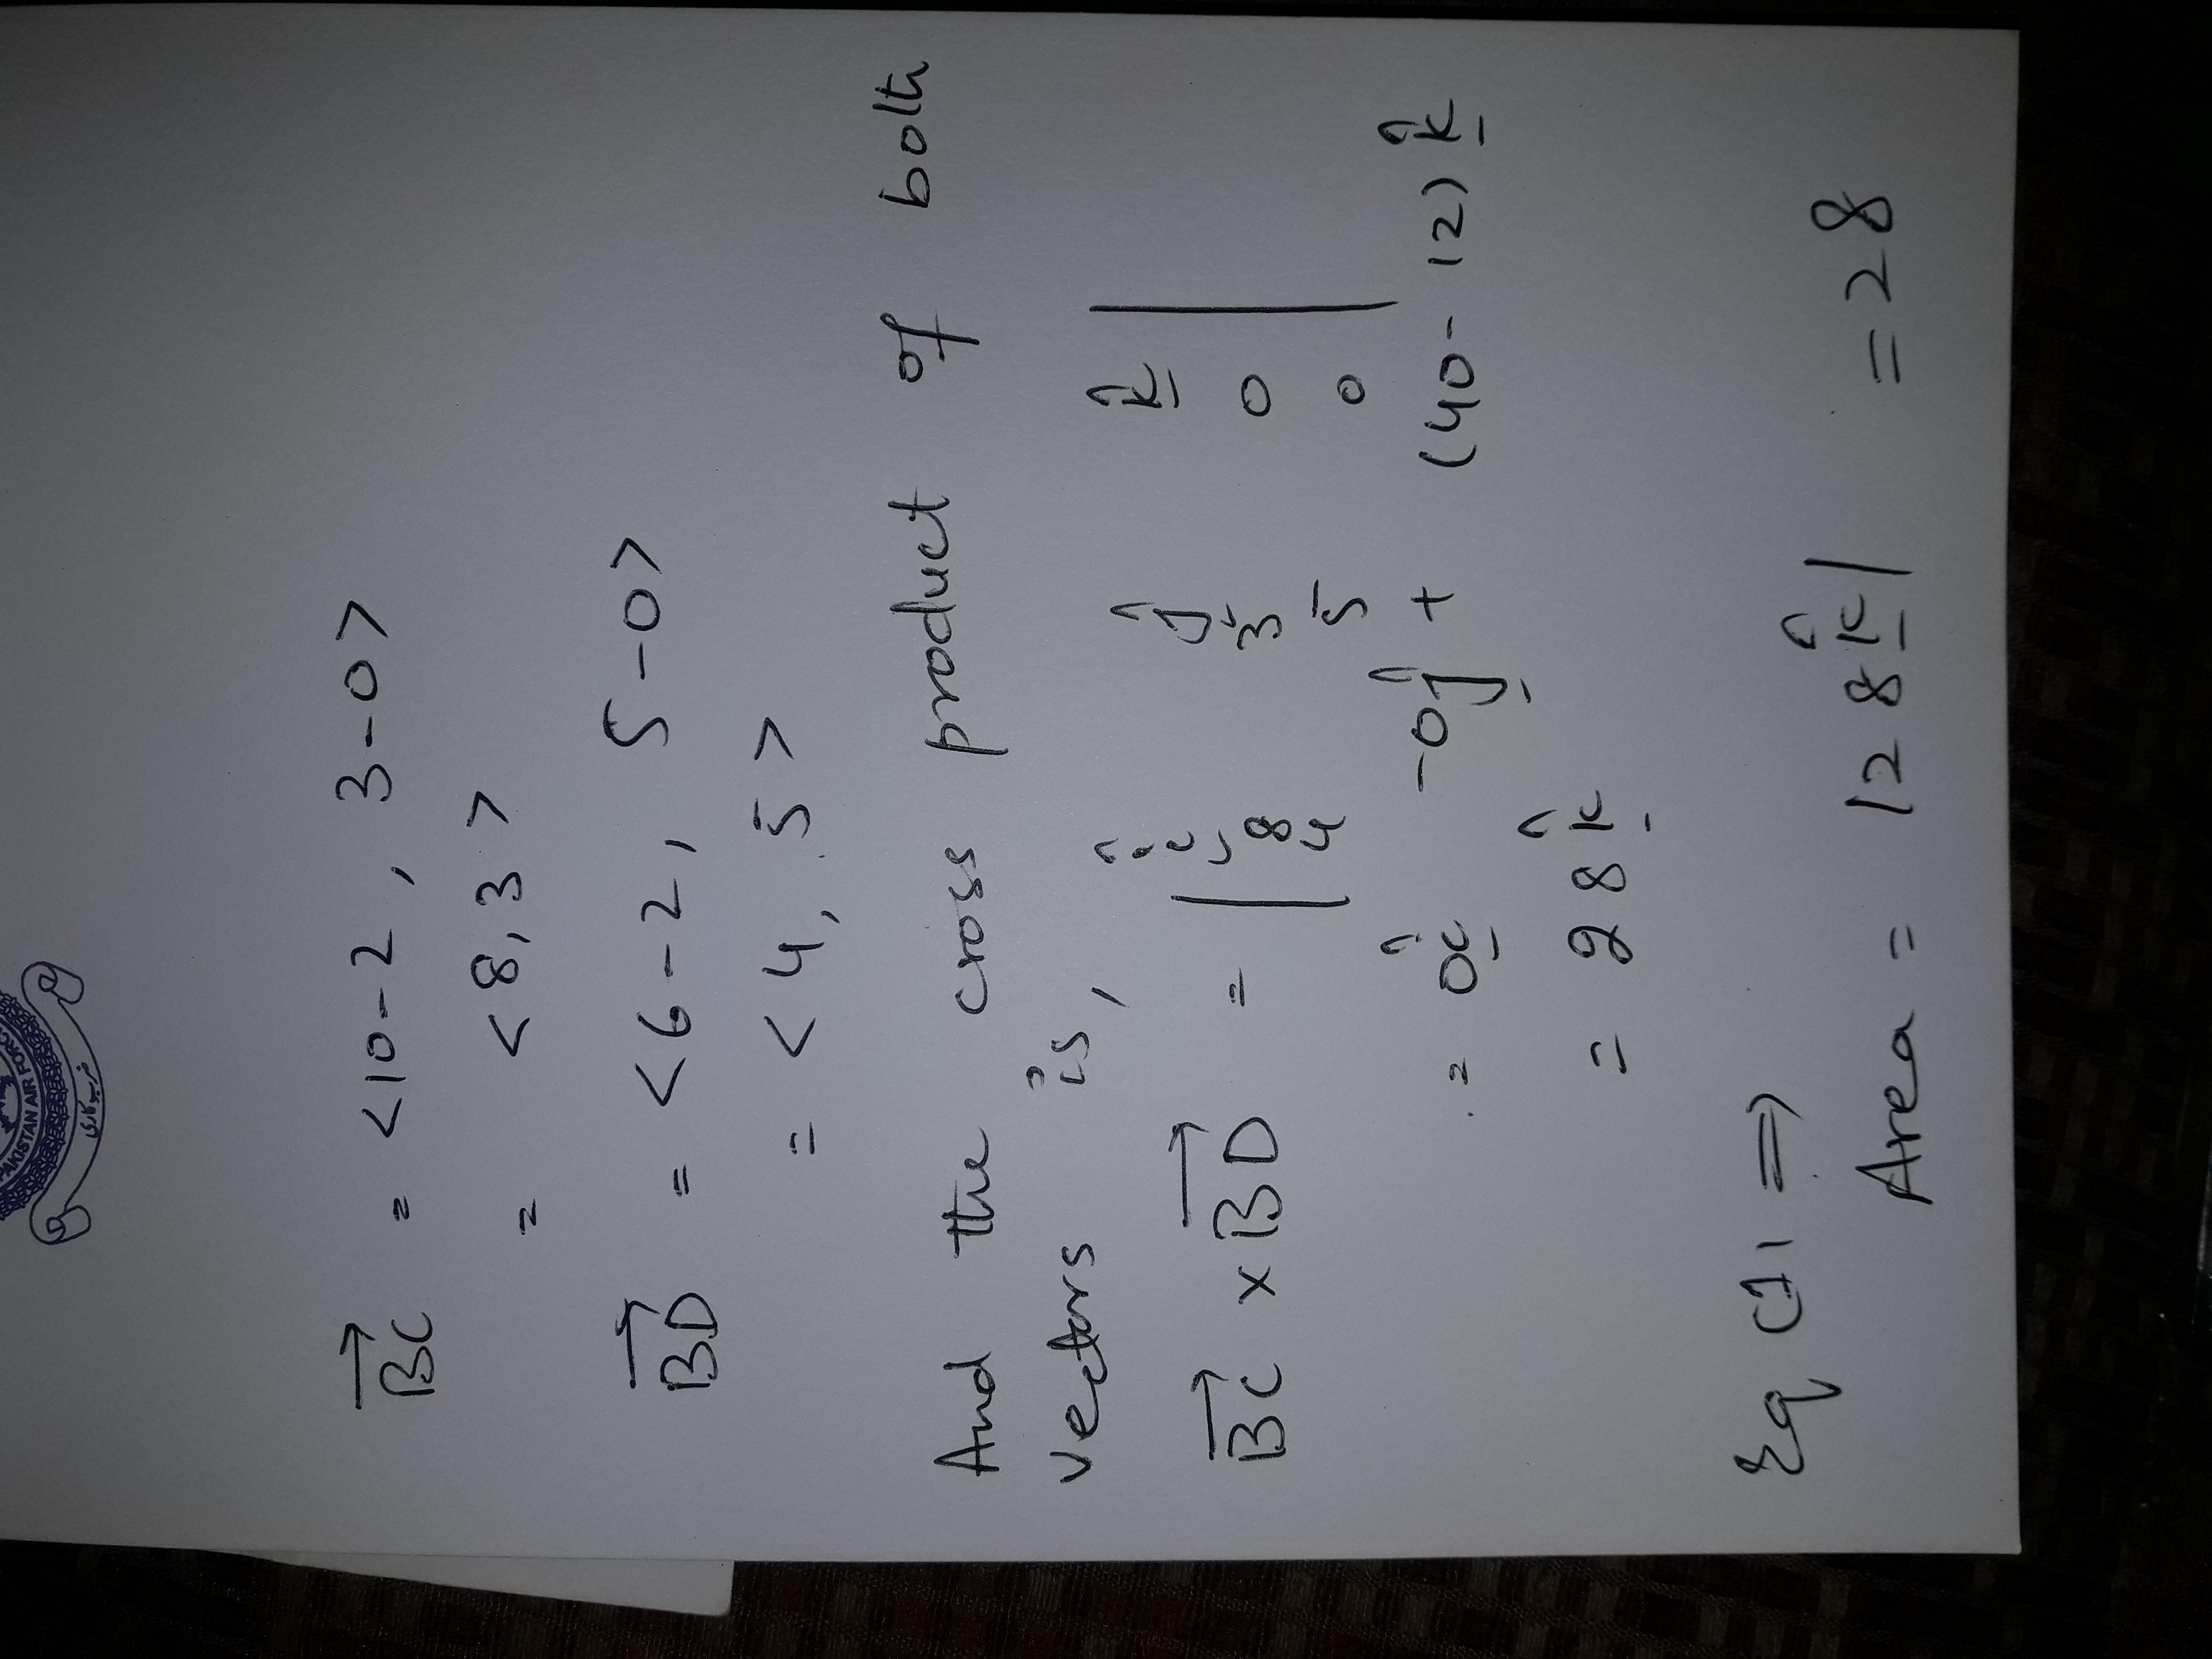 PAKISTAN AIR FORCE
BC = <10-2, 3-0>
= <8,3>
BD = <6-2, 5-0>
= <4, 5>
And the cross product of both
vectors is,
BC × BD = | î ĵ k̂ |
8 3 0
4 5 0
= 0î - 0ĵ + (40-12) k̂
= 28 k̂
Eq (1) ⇒
Area = |28 k̂| = 28